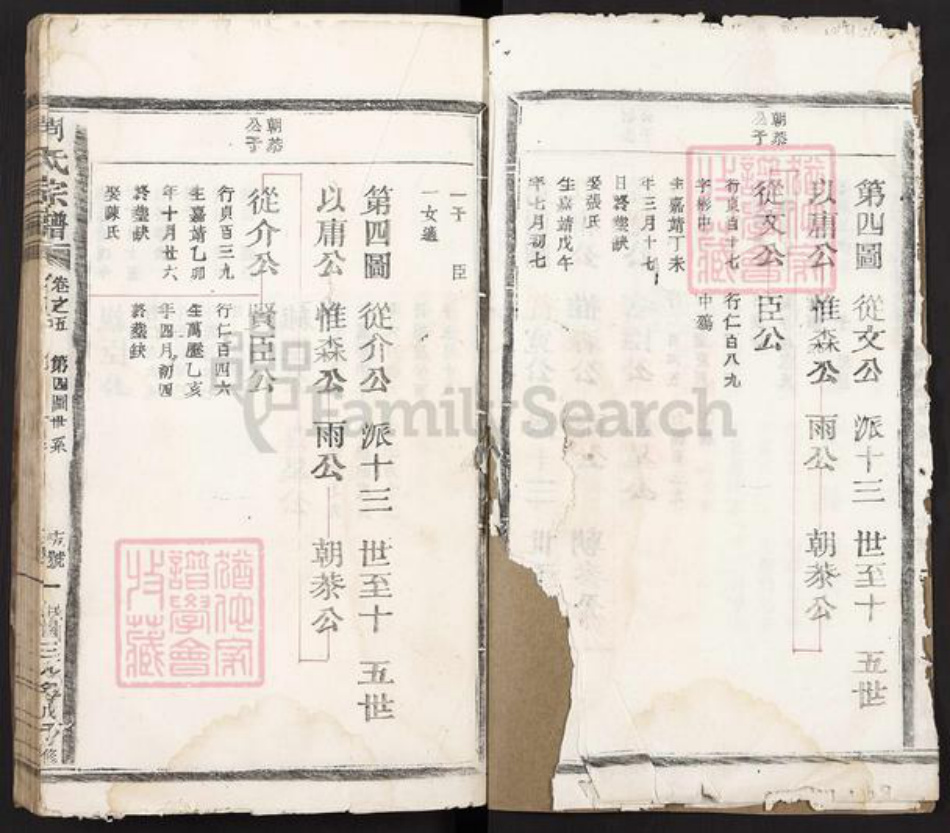 朝恭
公子
第四圖 從文公 派十三 世至十 五世
以庸公 惟森公 雨公 朝恭公
從文公 臣公
行貞百十七
字彬中
生嘉靖丁未
年三月十七
日終塋缺
娶張氏
生嘉靖戊午
年七月初七
行仁百八九
一子 臣
一女適
朝恭
公子
第四圖 從介公 派十三 世至十 五世
以庸公 惟森公 雨公 朝恭公
從介公 賢臣公
行貞百三九
生嘉靖乙卯
年十月廿六
終塋缺
娶陳氏
行仁百四六
生萬歷乙亥
年四月初四
終塋缺
周氏宗譜 卷之五 第四圖世系
FamilySearch